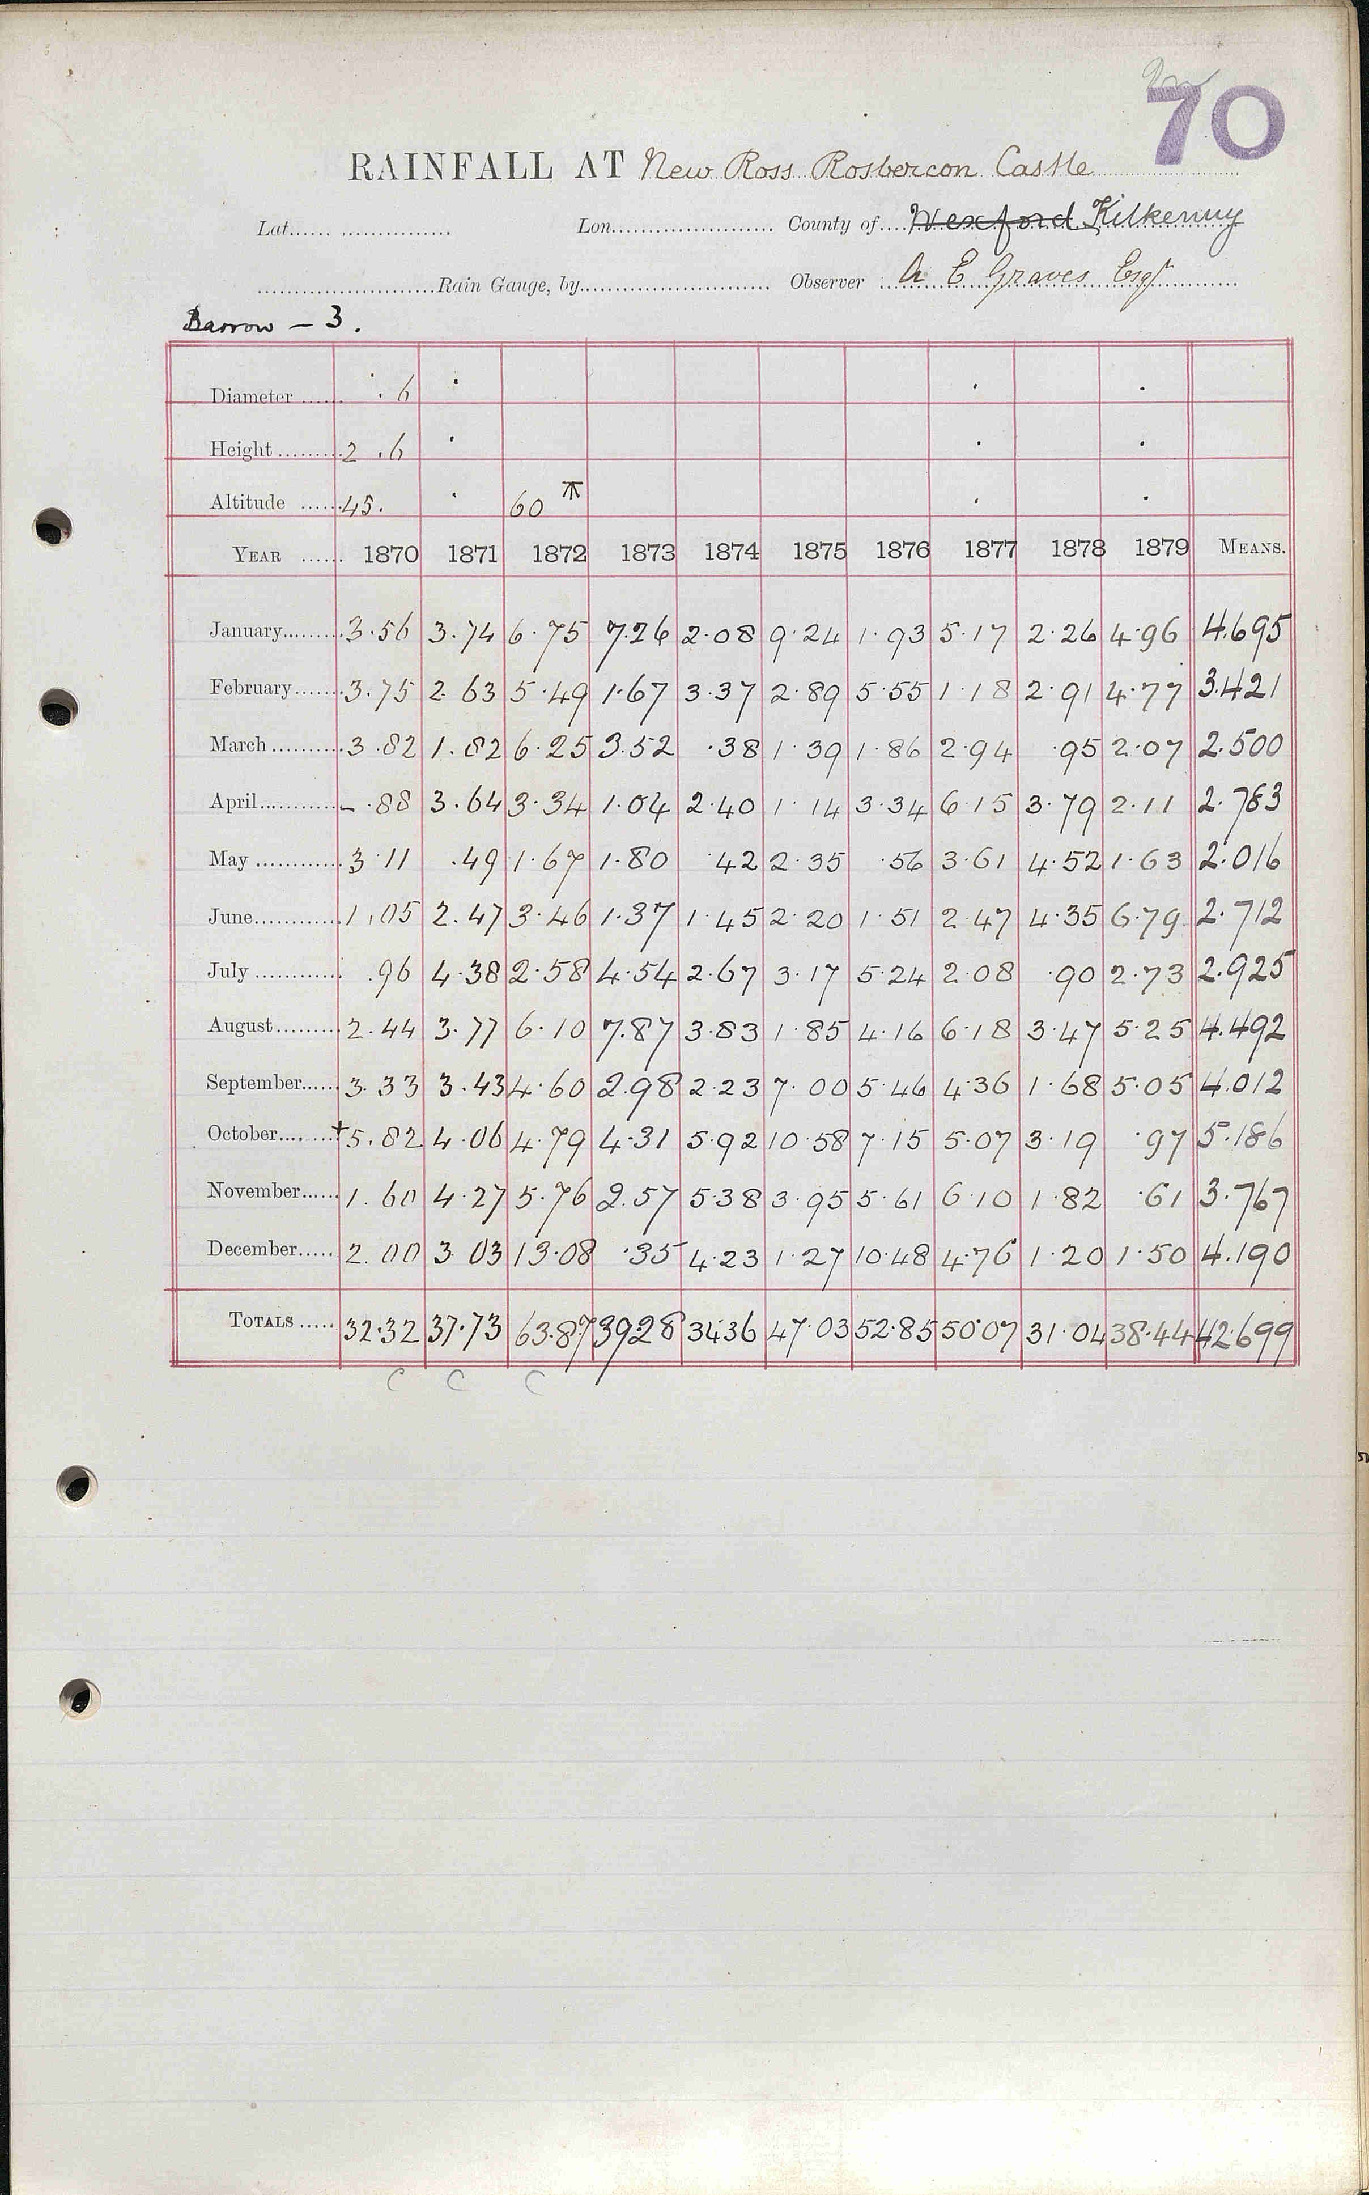 70
RAINFALL AT New Ross Rosbercon Castle
Lat. Lon. County of Wexford Kilkenny
Rain Gauge, by Observer A E Graves Esqr
Barrow – 3.
Diameter .6
Height 2 .6
Altitude 45. 60
YEAR 1870 1871 1872 1873 1874 1875 1876 1877 1878 1879 MEANS.
January 3.56 3.74 6.75 7.26 2.08 9.24 1.93 5.17 2.26 4.96 4.695
February 3.75 2.63 5.49 1.67 3.37 2.89 5.55 1.18 2.91 4.77 3.421
March 3.82 1.82 6.25 3.52 .38 1.39 1.86 2.94 .95 2.07 2.500
April – .88 3.64 3.34 1.04 2.40 1.14 3.34 6.15 3.79 2.11 2.783
May 3.11 .49 1.67 1.80 .42 2.35 .56 3.61 4.52 1.63 2.016
June 1.05 2.47 3.46 1.37 1.45 2.20 1.51 2.47 4.35 6.79 2.712
July .96 4.38 2.58 4.54 2.67 3.17 5.24 2.08 .90 2.73 2.925
August 2.44 3.77 6.10 7.87 3.83 1.85 4.16 6.18 3.47 5.25 4.492
September 3.33 3.43 4.60 2.98 2.23 7.00 5.46 4.36 1.68 5.05 4.012
October +5.82 4.06 4.79 4.31 5.92 10.58 7.15 5.07 3.19 .97 5.186
November 1.60 4.27 5.76 2.57 5.38 3.95 5.61 6.10 1.82 .61 3.767
December 2.00 3 03 13.08 .35 4.23 1.27 10.48 4.76 1.20 1.50 4.190
TOTALS 32.32 37.73 63.87 3928 3436 47.03 52.85 50.07 31.04 38.44 42.699
C C C